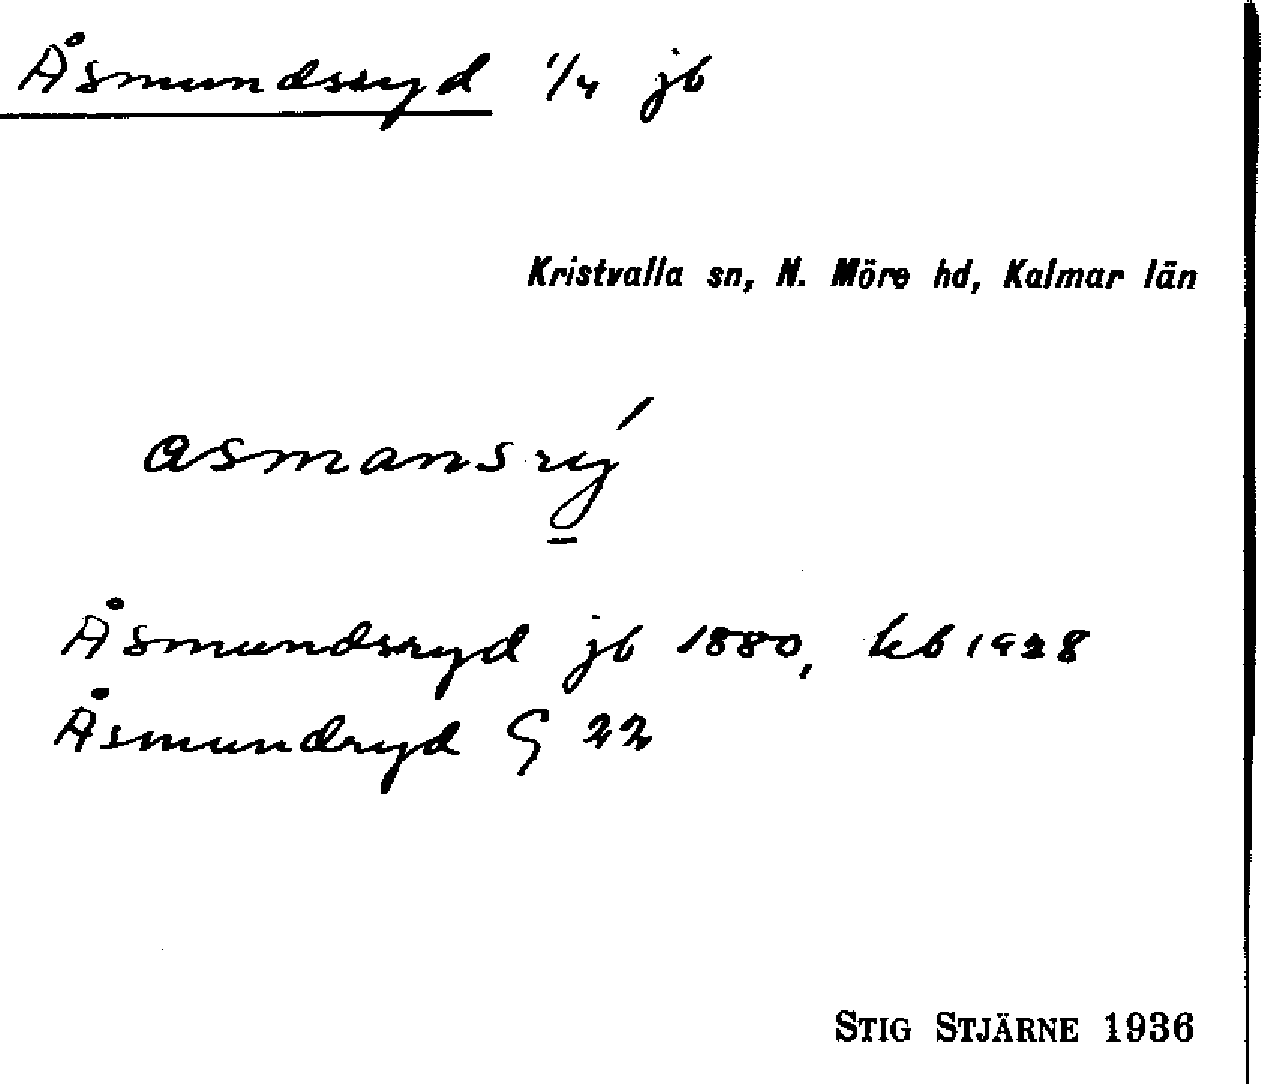 Åsmundsryd 1/4 jb
Kristvalla sn, N. Möre hd, Kalmar län
asmansrý
Åsmundsryd jb 1880, kb 1928
Åsmundryd G 22
STIG STJÄRNE 1936